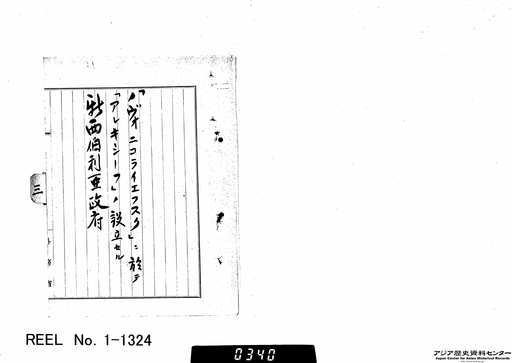 「ノヴォニコライエフスク」ニ於テ
「アレキシーフ」ノ設立セル
新西伯利亜政府
三
REEL No. 1-1324
0340
アジア歴史資料センター
Japan Center for Asian Historical Records